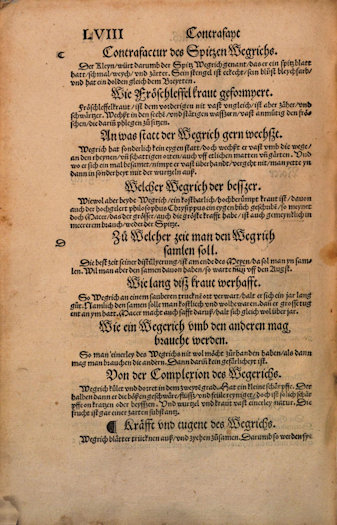 LVIII Contrafayt
C Contrafactur des Spitzen Wegrichs.
Der Kleyn/würt darumb der Spitz Wegrich genant/das er ein spitzblatt
hatt/schmal/weych/vnd zärter. Sein stengel ist eckecht/sein blüst bleychfarb/
vnd hat ein dolden gleich dem Breyten.
Wie Fröschleffel kraut geformyert.
Fröschleffelkraut/ist dem vorderigen nit vast vngleich/ist aber zäher/vnd
schwärtzer. Wechßt in den seehe/vnd stättgen wassern/vast anmütig den frö-
schen/die darüß pflegen zů sitzen.
An was statt der Wegrich gern wechßt.
Wegrich hat sonderlich kein eygen statt/doch wechßt er vast vmb die wege/
an den rheynen/vñ schattigen orten/auch vff etlichen matten vñ gärten. Vnd
wo er sich ein mal besamet/nimpt er vast überhandt/vergeht nit/man yette yn
dann in sonderheyt mit der wurtzeln auß.
Welcher Wegrich der besszer.
Wiewol aber beyde Wegrich/ein kostbarlich/hochberümpt kraut ist/dauon
auch der hochgelert philosophus Chrysippus ein eygen bůch geschribẽ/so meynet
doch Macer/das der grösser/auch die größte krafft habe/ist auch gemeynklich in
meererem brauch/weder der Spitze.
D Zů Welcher zeit man den Wegrich
samlen soll.
Die best zeit seiner distillyerung/ist am ende des Meyen/da sol man yn sam-
len. Wil man aber den samen dauon haben/so warte biß vff den Augst.
Wie lang diß kraut werhafft.
So Wegrich an einem sauberen trucknē ort verwart/halt er sich ein jar lang
gůt. Namlich den samen solle man kostlich vnd wolbewaren/dañ er grosse tug
ent an ym hatt. Macer macht auch safft daruß/halt sich gleich wol über jar.
Wie ein Wegerich vmb den anderen mag
braucht werden.
So man einerley des Wegrichs nit wol möcht zůrhanden haben/als dann
mag man brauchen die andern. Dann darũ kein geserlicheyt ist.
Von der Complexion des Wegerichs.
Wegrich kület vnd dörret in dem zweytẽ grad. Hat ein kleine schärpffe. Der
halben dann er die bösen geschwäre/flüssz/vnd feüle reyniget/doch ist solich schär
pffe on kratzen oder beysszen. Vnd wurtzel vnd kraut vast einerley natur. Die
frucht ist gar einer zarten substantz.
¶ Kräfft vnd tugent des Wegrichs.
Wegrich blätter trücknen auß/vnd zyehen zůsamen. Darumb so werden sye